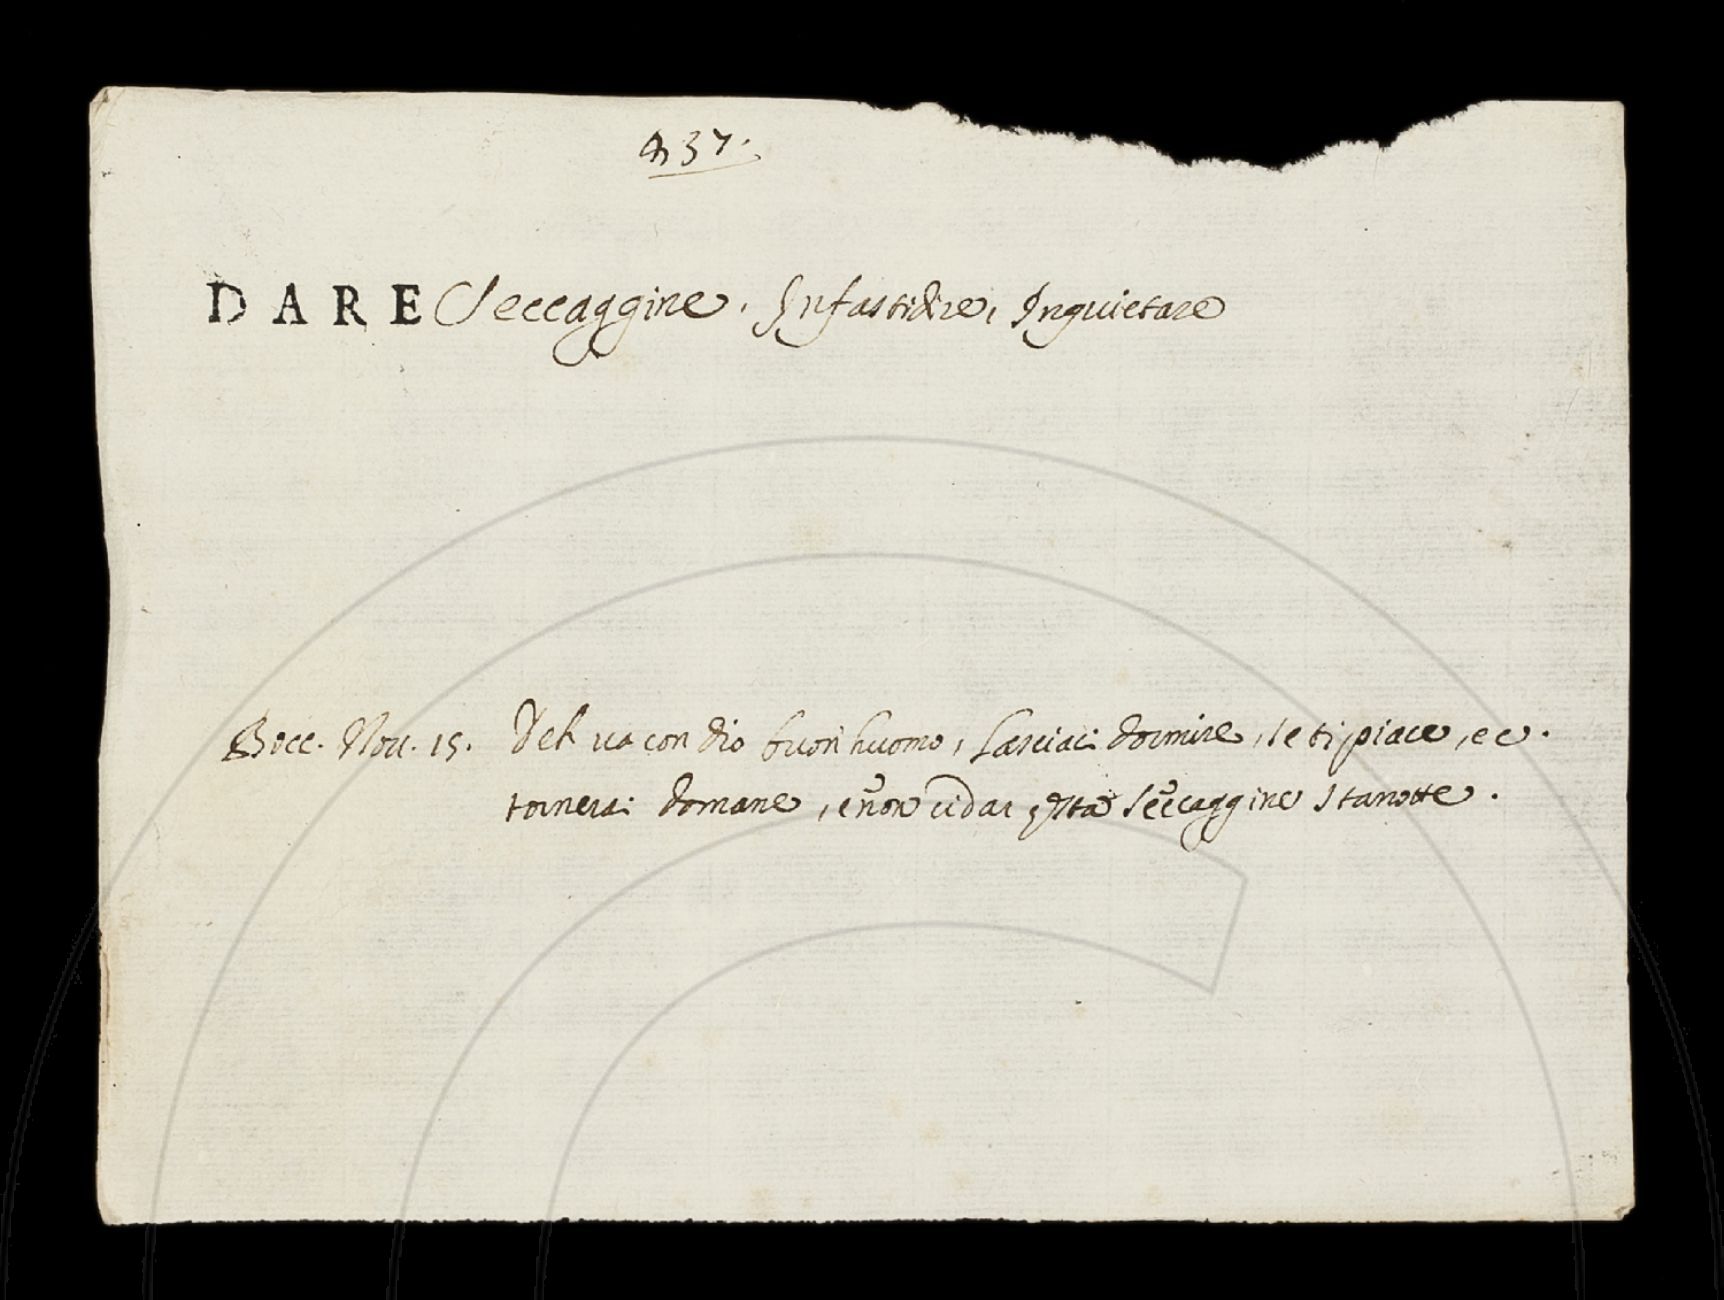 437.
DARE Seccaggine. Infastidire, Inquietare
Bocc. Nov. 15. Deh va con dio buon huomo, Lasciaci dormire, se ti piace, ec.
tornerai domane, e non ci dar qsta seccaggine stanotte.